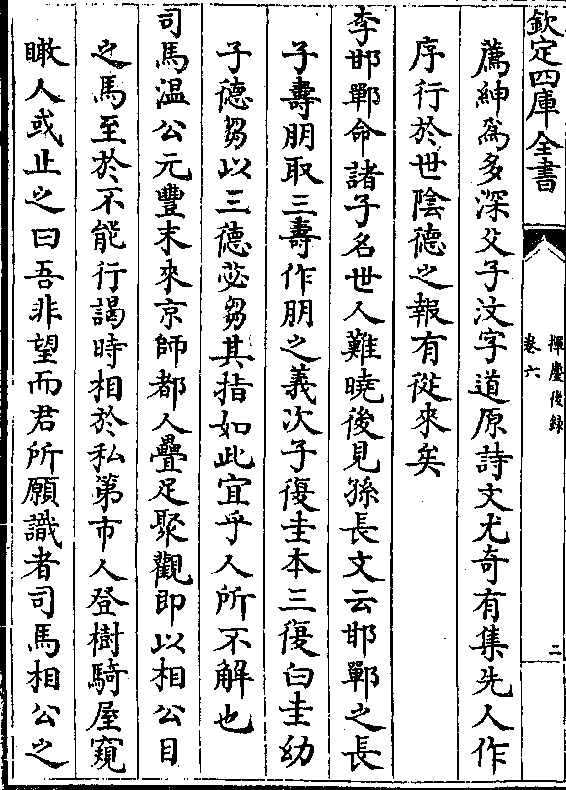 欽定四庫全書
揮麈後録
卷六
二
薦紳為多深父子汶字道原詩文尤奇有集先人作
序行於世陰德之報有從來矣
李邯鄲命諸子名世人難曉後見孫長文云邯鄲之長
子壽朋取三壽作朋之義次子復圭本三復白圭幼
子德芻以三德苾芻其指如此宜乎人所不解也
司馬温公元豐末來京師都人疊足聚觀即以相公目
之馬至於不能行謁時相於私第市人登樹騎屋窺
瞰人或止之曰吾非望而君所願識者司馬相公之